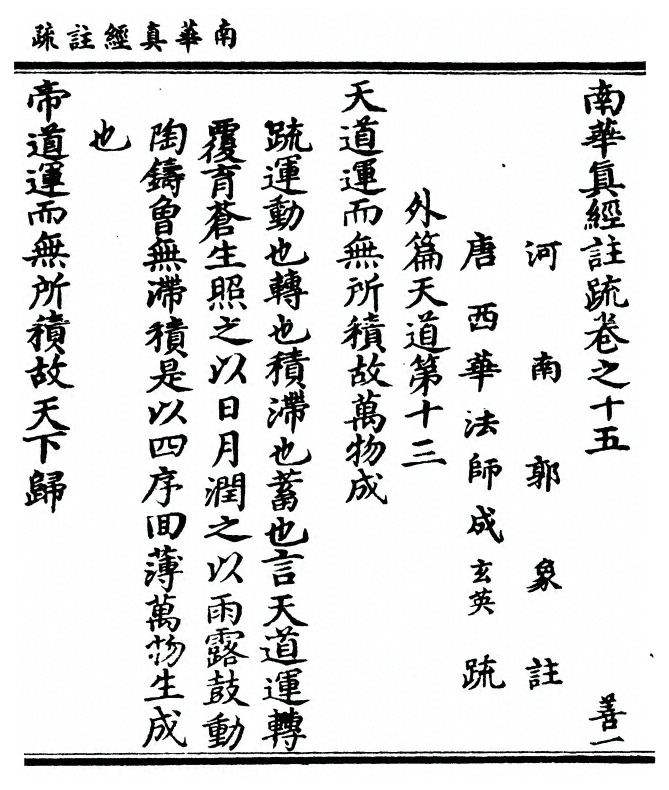 南華真經註疏
南華真經註疏卷之十五 善一
河南郭象註
唐西華法師成玄英疏
外篇天道第十三
天道運而無所積故萬物成
疏運動也轉也積滯也蓄也言天道運轉
覆育蒼生照之以日月潤之以雨露鼓動
陶鑄曾無滯積是以四序回薄萬物生成
也
帝道運而無所積故天下歸